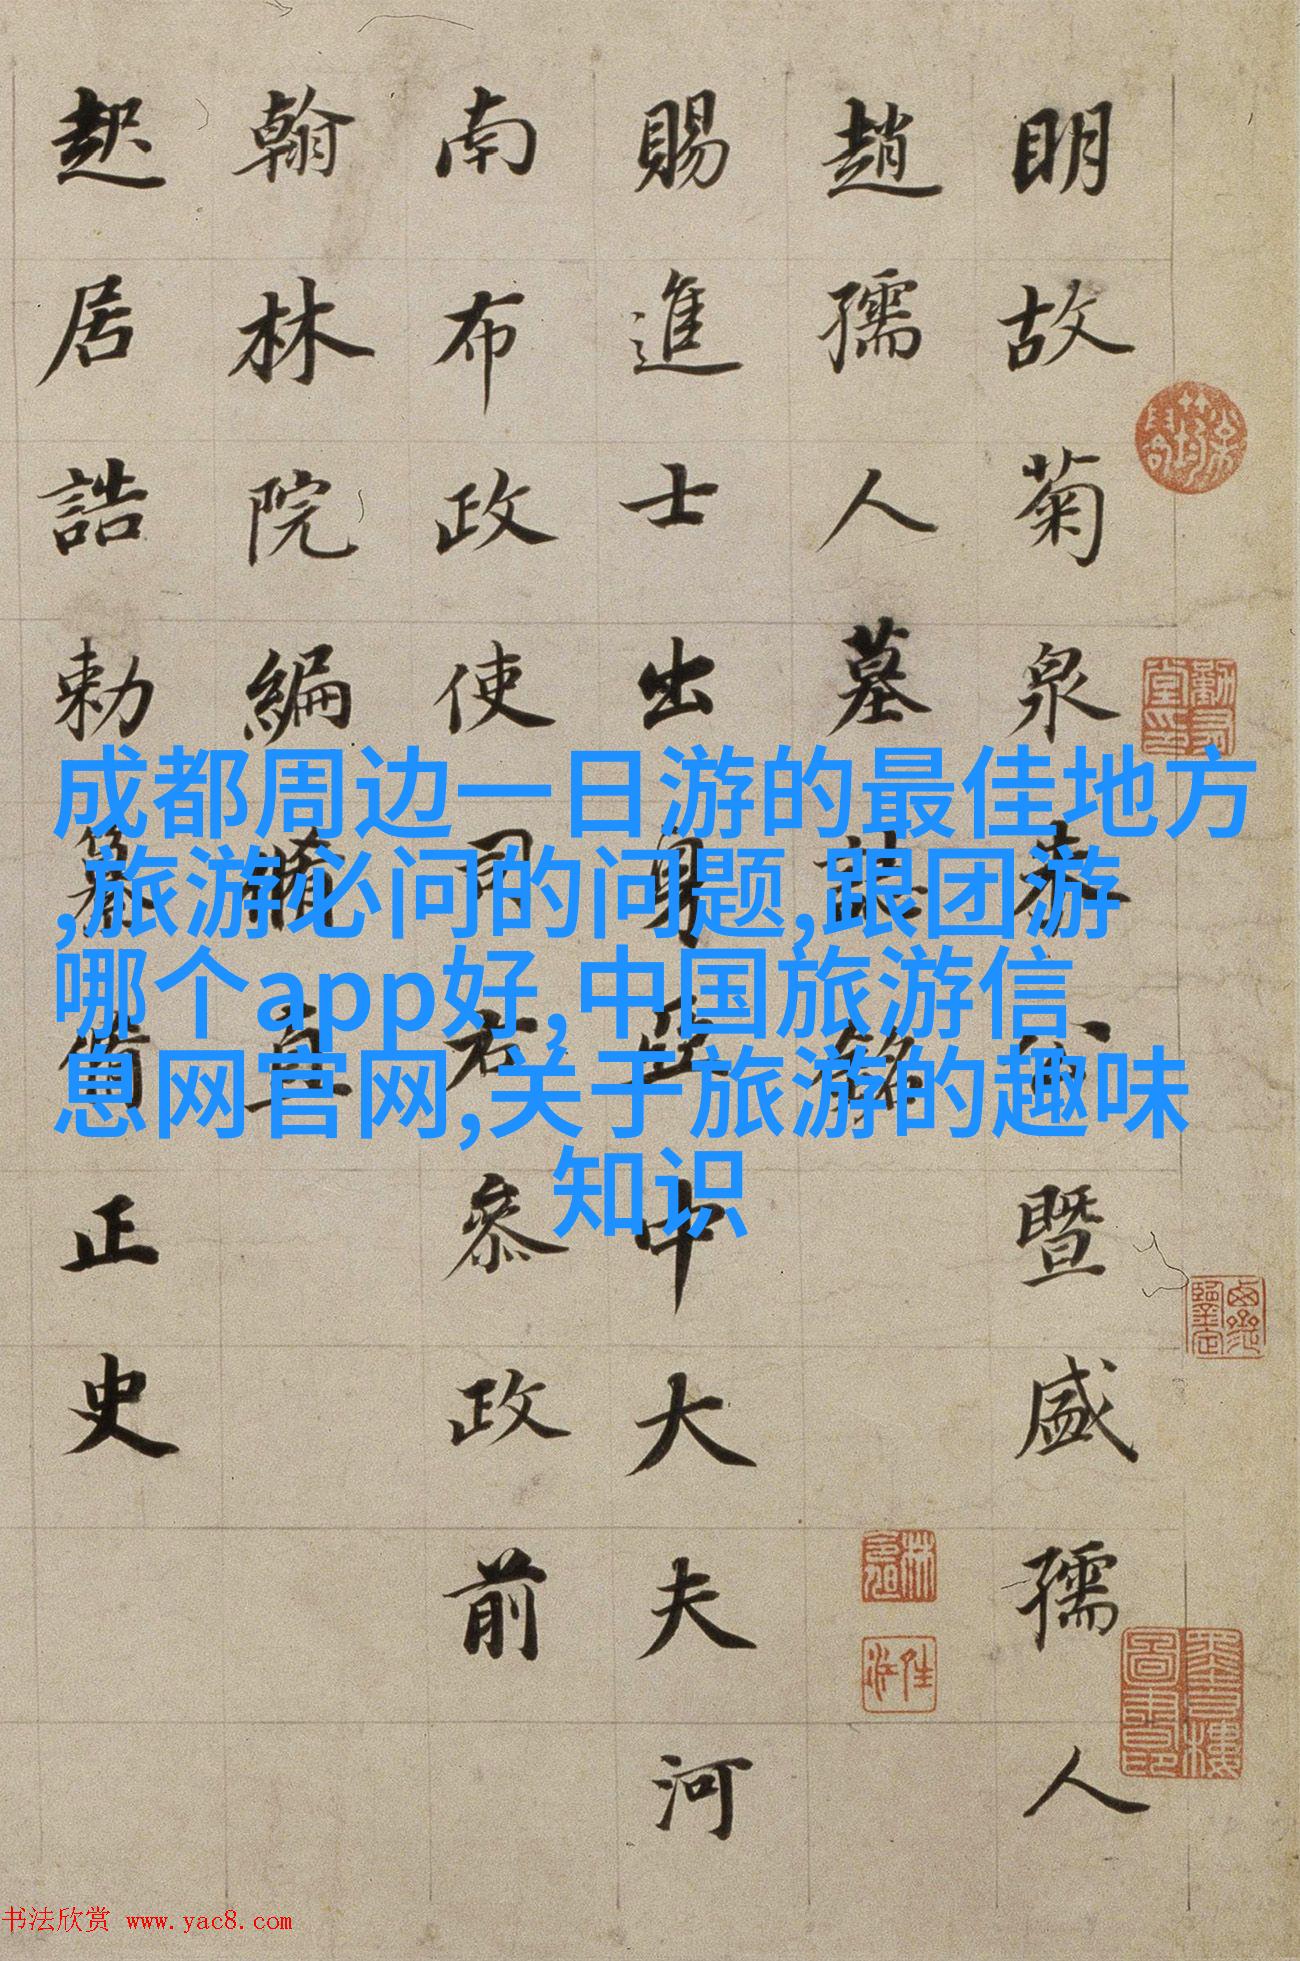 明故菊泉秦公暨盛孺人
趙孺人墓誌銘
賜進士出身亞中大夫河
南布政使司右叅政前
翰林院編脩直
起居誥勅纂備正史
成都周边一日游的最佳地方
,旅游必问的问题,跟团游
哪个app好,中国旅游信
息网官网,关于旅游的趣味
知识
书法欣赏 www.yac8.com